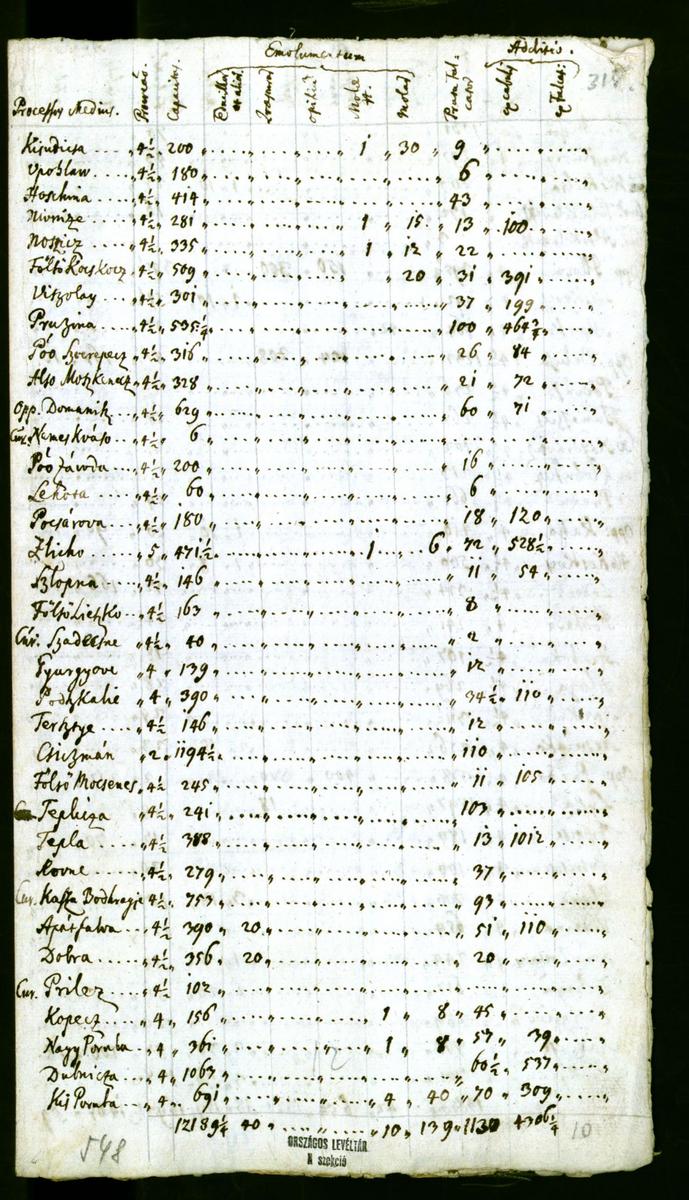 Emolumentum Additio.
Processus Medius. Capacitas. Molae Molae
Kisudicsa 4½ 200 1 30 9
Opohlaw 4½ 180 6
Hoschina 4½ 414 43
Nivnize 4½ 281 1 15 13 100
Nosicz 4½ 335 1 12 22
Fölső Kocskocz 4½ 509 20 31 391
Viszolay 4½ 301 37 199
Pruzina 4½ 535¼ 100 464¾
Póo Szverepecz 4½ 316 26 84
Also Moszkenecz 4½ 328 21 72
Opp. Domanik 4½ 629 60 71
Cur. Nemes Kváso 4½ 6
Póo závoda 4½ 200 16
Lehota 4½ 60 6
Pocsárova 4½ 180 18 120
Zlieho 5 471½ 1 6 72 528½
Szlopna 4½ 146 11 54
Fölső Lieszko 4½ 163 8
Cur. Szadecsne 4½ 40 2
Gyurgyove 4 139 12
Podszkalie 4 390 34½ 110
Tersztye 4½ 146 12
Csiczmán 2 1194½ 110
Fölső Mocsenes 4½ 245 11 105
Teplicza 4½ 241 103
Tepla 4½ 388 13 1012
Rovne 4½ 279 37
Cur. Kassa Bodhragje 4½ 753 93
Apátfalva 4½ 390 20 51 110
Dobra 4½ 356 20 20
Cur. Prilez 4½ 102
Kopecz 4 156 1 8 45
Nagy Poruba 4 361 1 8 57 39
Dubnicza 4 1063 60½ 537
Kis Poruba 4 691 4 40 70 309
12189¼ 40 10 139 1130 4306¼
548
10
ORSZÁGOS LEVÉLTÁR
N szekció